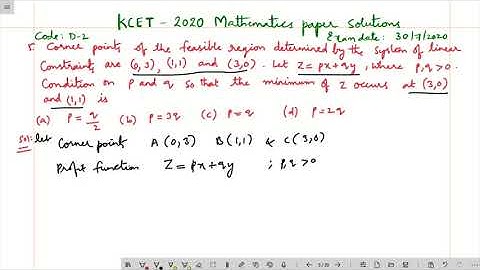 KCET - 2020 Mathematics paper Solutions
Code: D-2 Exam date: 30/7/2020
5. Corner points of the feasible region determined by the system of linear
Constraints are (0,3), (1,1) and (3,0). Let Z=px+qy, where p,q>0.
Condition on p and q so that the minimum of Z occurs at (3,0)
and (1,1) is
(a) p=q/2 (b) p=3q (c) p=q (d) p=2q
Sol: Let Corner point A(0,3) B(1,1) & C(3,0)
Profit function Z=px+qy ; p,q>0